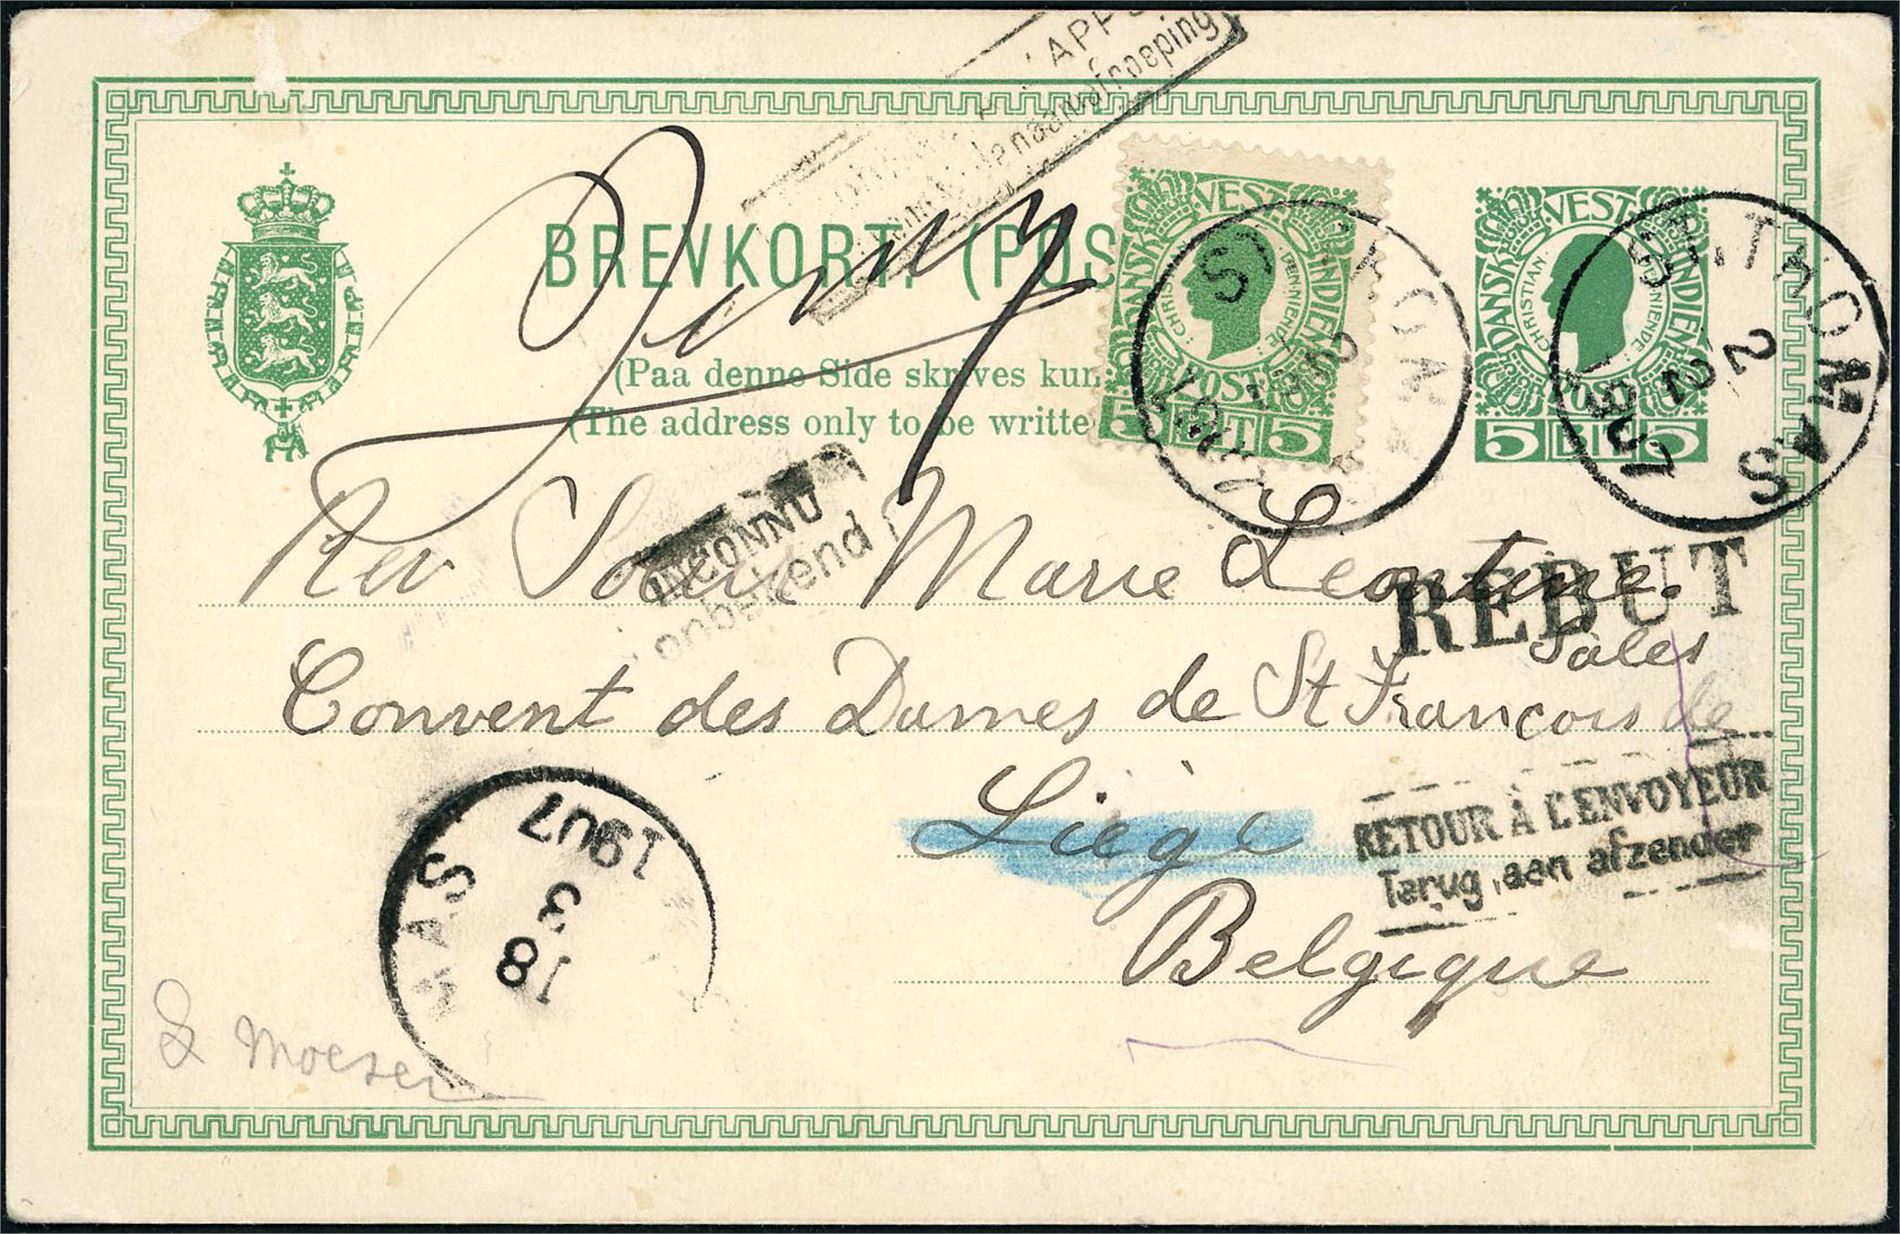 APPE
naanuafroeping
BREVKORT. (POS
(Paa denne Side skrives kun
(The address only to be writte
DANSK VEST INDIEN
CHRISTIAN DEN NIENDE
POST
5 BIT 5
DANSK VEST INDIEN
CHRISTIAN DEN NIENDE
POST
5 BIT 5
ST. THOMAS
2
2
1907
INCONNU
onbekend
REBUT
Rev Soeur Marie Leontine.
Convent des Dames de St François de
Sales
Liège
Belgique
RETOUR À L'ENVOYEUR
Terug aan afzender
MAS
18
3
1907